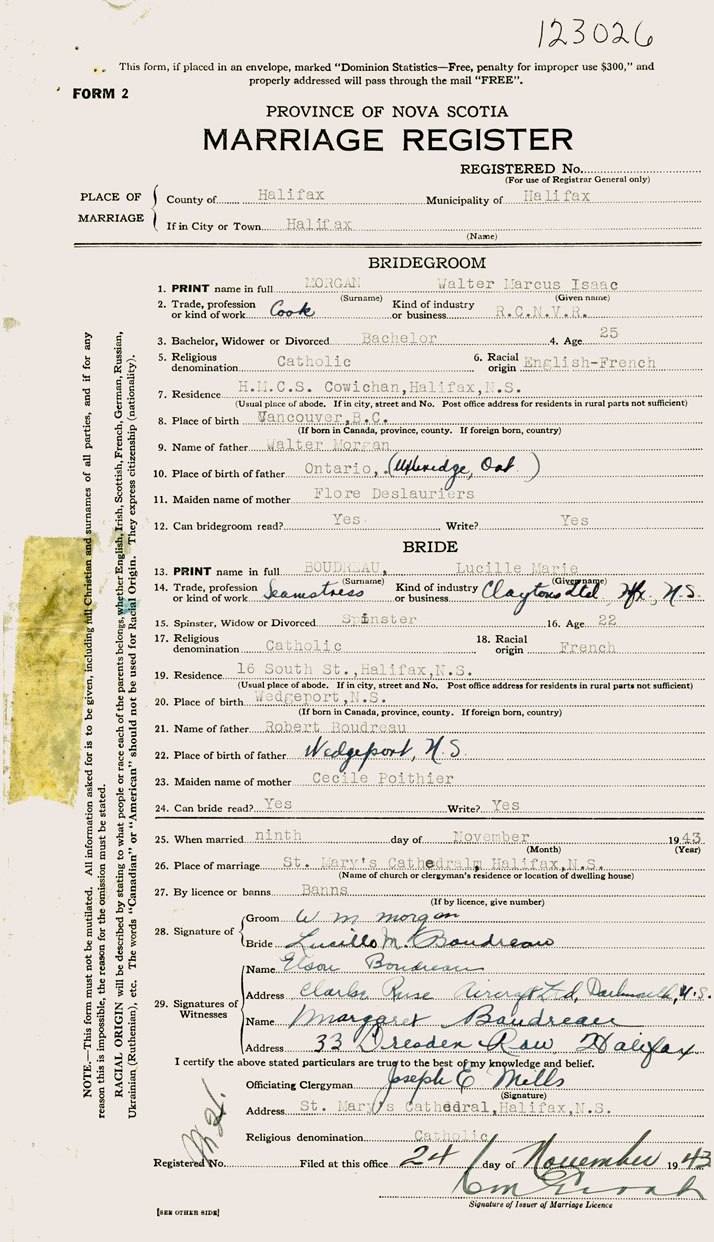 123026
This form, if placed in an envelope, marked "Dominion Statistics—Free, penalty for improper use $300," and
properly addressed will pass through the mail "FREE".
FORM 2
PROVINCE OF NOVA SCOTIA
MARRIAGE REGISTER
REGISTERED No.
(For use of Registrar General only)
PLACE OF MARRIAGE
County of Halifax Municipality of Halifax
If in City or Town Halifax
(Name)
BRIDEGROOM
1. PRINT name in full MORGAN Walter Marcus Isaac
(Surname) (Given name)
2. Trade, profession or kind of work Cook Kind of industry or business R.C.N.V.R.
3. Bachelor, Widower or Divorced Bachelor 4. Age 25
5. Religious denomination Catholic 6. Racial origin English-French
7. Residence H.M.C.S. Cowichan, Halifax, N.S.
(Usual place of abode. If in city, street and No. Post office address for residents in rural parts not sufficient)
8. Place of birth Vancouver, B.C.
(If born in Canada, province, county. If foreign born, country)
9. Name of father Walter Morgan
10. Place of birth of father Ontario, (Uxbridge, Ont )
11. Maiden name of mother Flore Deslauriers
12. Can bridegroom read? Yes Write? Yes
BRIDE
13. PRINT name in full BOUDREAU, Lucille Marie
(Surname) (Given name)
14. Trade, profession or kind of work Seamstress Kind of industry or business Claytons Ltd, Hfx, N.S.
15. Spinster, Widow or Divorced Spinster 16. Age 22
17. Religious denomination Catholic 18. Racial origin French
19. Residence 16 South St., Halifax, N.S.
(Usual place of abode. If in city, street and No. Post office address for residents in rural parts not sufficient)
20. Place of birth Wedgeport, N.S.
(If born in Canada, province, county. If foreign born, country)
21. Name of father Robert Boudreau
22. Place of birth of father Wedgeport, N.S.
23. Maiden name of mother Cecile Poithier
24. Can bride read? Yes Write? Yes
25. When married ninth day of November 1943
(Month) (Year)
26. Place of marriage St. Mary's Cathedral, Halifax, N.S.
(Name of church or clergyman's residence or location of dwelling house)
27. By licence or banns Banns
(If by licence, give number)
28. Signature of
Groom W M Morgan
Bride Lucille M. Boudreau
29. Signatures of Witnesses
Name Boudreau
Address Clarke Ruse Aircraft Ltd, Dartmouth, N.S.
Name Margaret Boudreau
Address 33 Dresden Row Halifax
I certify the above stated particulars are true to the best of my knowledge and belief.
Officiating Clergyman Joseph E Mills
(Signature)
Address St. Mary's Cathedral, Halifax, N.S.
Religious denomination Catholic
Registered No. Filed at this office 24 day of November 1943
Signature of Issuer of Marriage Licence
[SEE OTHER SIDE]
NOTE.—This form must not be mutilated. All information asked for is to be given, including full Christian and surnames of all parties, and if for any
reason this is impossible, the reason for the omission must be stated.
RACIAL ORIGIN will be described by stating to what people or race each of the parents belongs, whether English, Irish, Scottish, French, German, Russian,
Ukrainian (Ruthenian), etc. The words "Canadian" or "American" should not be used for Racial Origin. They express citizenship (nationality).